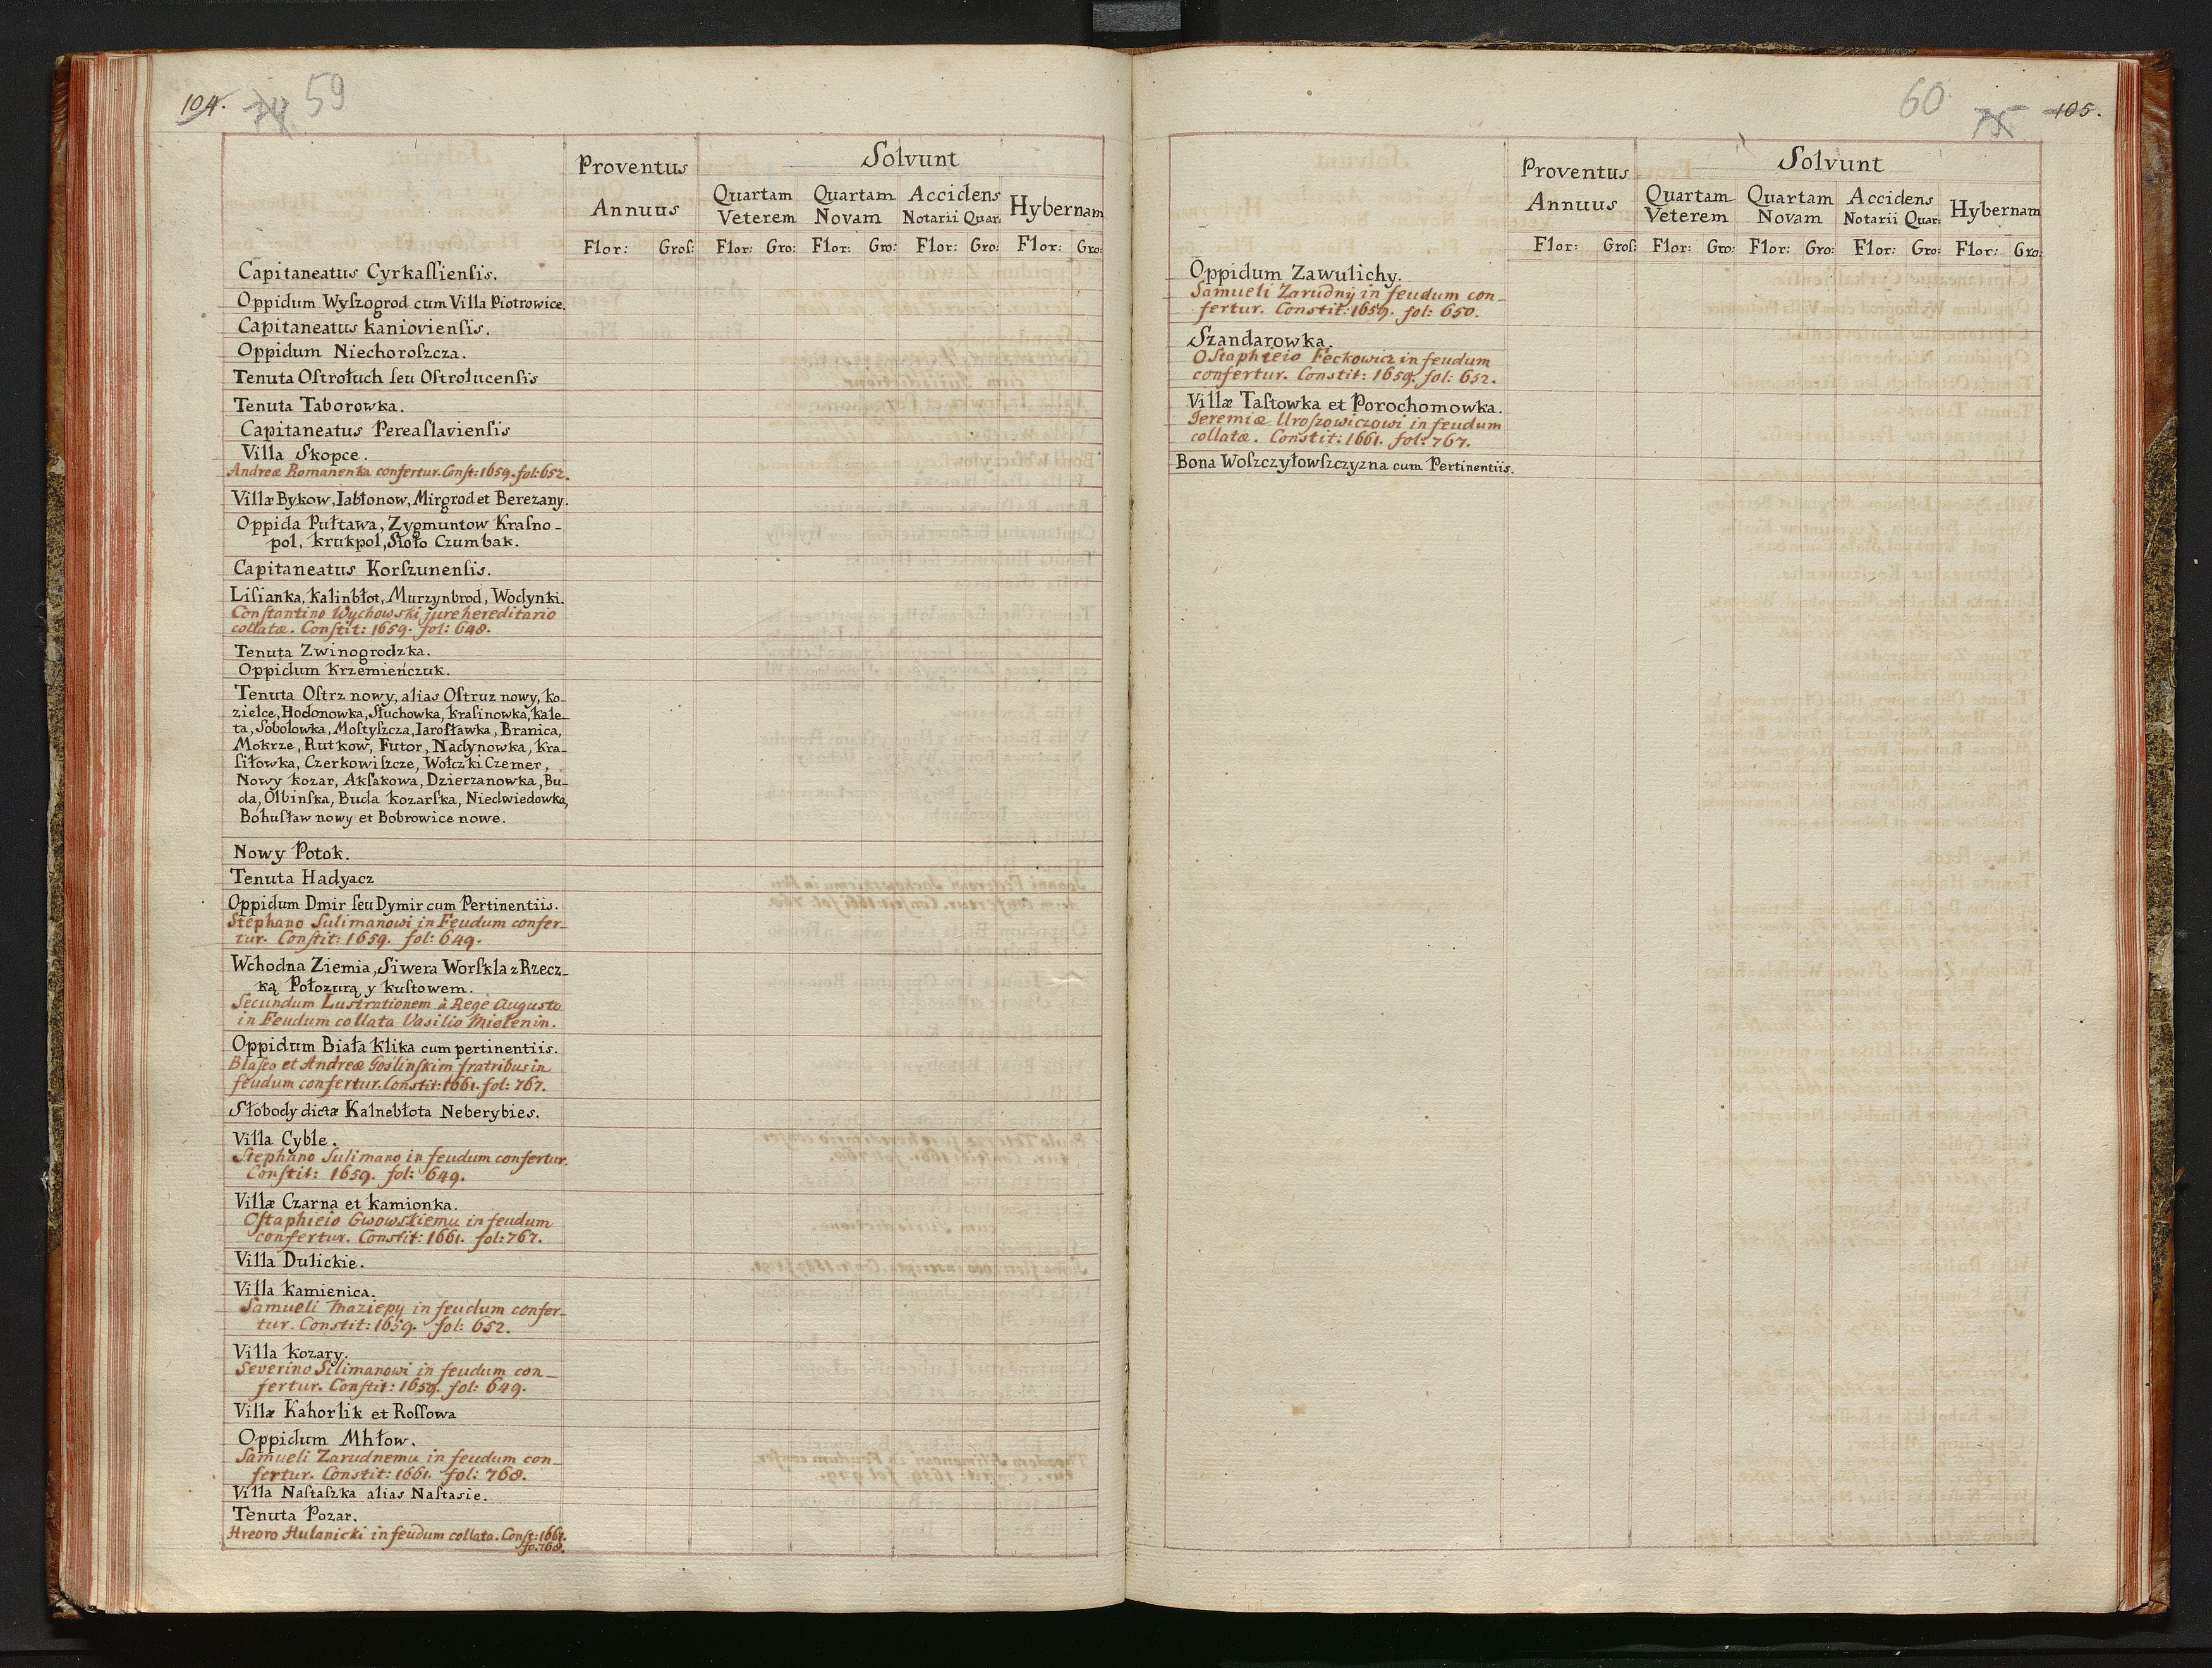 104. 74. 59
Proventus Annuus
Solvunt
Quartam Veterem
Quartam Novam
Accidens Notarii Quar:
Hybernam
Flor: Groſ: Flor: Gro: Flor: Gro: Flor: Gro: Flor: Gro:
Capitaneatus Cyrkaſſienſis.
Oppidum Wyſzogrod cum Villa Piotrowice.
Capitaneatus Kaniovienſis.
Oppidum Niechoroſzcza.
Tenuta Oſtrołuch ſeu Oſtrołucenſis
Tenuta Taborowka.
Capitaneatus Pereaſlavienſis
Villa Skopce.
Andreæ Romanenka confertur. Conſt: 1659. fol: 652.
Villæ Bykow, Jabłonow, Mirgrod et Berezany.
Oppida Pułtawa, Zygmuntow Kraſno-
pol, Krukpol, Sioło Czumbak.
Capitaneatus Korſzunenſis.
Liſianka, Kalinbłot, Murzynbrod, Wodynki.
Conſtantino Wychowski jure hereditario
collatæ. Conſtit: 1659. fol: 648.
Tenuta Zwinogrodzka.
Oppidum Krzemieńczuk.
Tenuta Oſtrz nowy, alias Oſtruz nowy, Ko-
zielce, Hodonowka, Słuchowka, Kraſinowka, Kale-
ta, Sobolowka, Moſtyſzcza, Jaroſławka, Branica,
Mokrze, Rutkow, Futor, Nadynowka, Kra-
ſiłowka, Czerkowiſzcze, Wołczki Czemer,
Nowy Kozar, Akſakowa, Dzierzanowka, Bu-
da, Olbinſka, Buda Kozarſka, Niedwiedowka,
Bohuſław nowy et Bobrowice nowe.
Nowy Potok.
Tenuta Hadyacz
Oppidum Dmir ſeu Dymir cum Pertinentiis.
Stephano Sulimanowi in Feudum confer-
tur. Conſtit: 1659. fol: 649.
Wchodna Ziemia, Siwera Worſkla z Rzecz-
ką Połozurą y Kuſtowem.
Secundum Lustrationem à Rege Augusto
in Feudum collata Vasilio Mielenin.
Oppidum Biała Klika cum pertinentiis.
Blaſeo et Andreæ Goślinſkim fratribus in
feudum confertur. Constit: 1661. fol: 767.
Słobody dictæ Kalnebłota Neberybies.
Villa Cyble.
Stephano Sulimano in feudum confertur.
Conſtit: 1659. fol: 649.
Villæ Czarna et Kamionka.
Oſtaphieio Gwowskiemu in feudum
confertur. Constit: 1661. fol: 767.
Villa Dulickie.
Villa Kamienica.
Samueli Maziepy in feudum confer-
tur. Constit: 1659. fol: 652.
Villa Kozary.
Severino Silimanowi in feudum con-
fertur. Conſtit: 1659. fol: 649.
Villæ Kahorlik et Roſſowa
Oppidum Mhłow.
Samueli Zarudnemu in feudum con-
fertur. Constit: 1661. fol: 768.
Villa Naſtaſzka alias Naſtasie.
Tenuta Pozar.
Hreoro Hulanicki in feudum collata. Conſt: 1661.
fo: 768.
60 75 105.
Proventus Annuus
Solvunt
Quartam Veterem
Quartam Novam
Accidens Notarii Quar:
Hybernam
Flor: Groſ: Flor: Gro: Flor: Gro: Flor: Gro: Flor: Gro:
Oppidum Zawulichy.
Samueli Zarudnij in feudum con-
fertur. Constit: 1659. fol: 650.
Szandarowka.
Ostaphieio Feckowicz in feudum
confertur. Constit: 1659. fol: 652.
Villæ Taſtowka et Porochomowka.
Jeremiæ Uroſzowiczowi in feudum
collatæ. Constit: 1661. fol: 767.
Bona Woſzczyłowſzczyzna cum Pertinentiis.